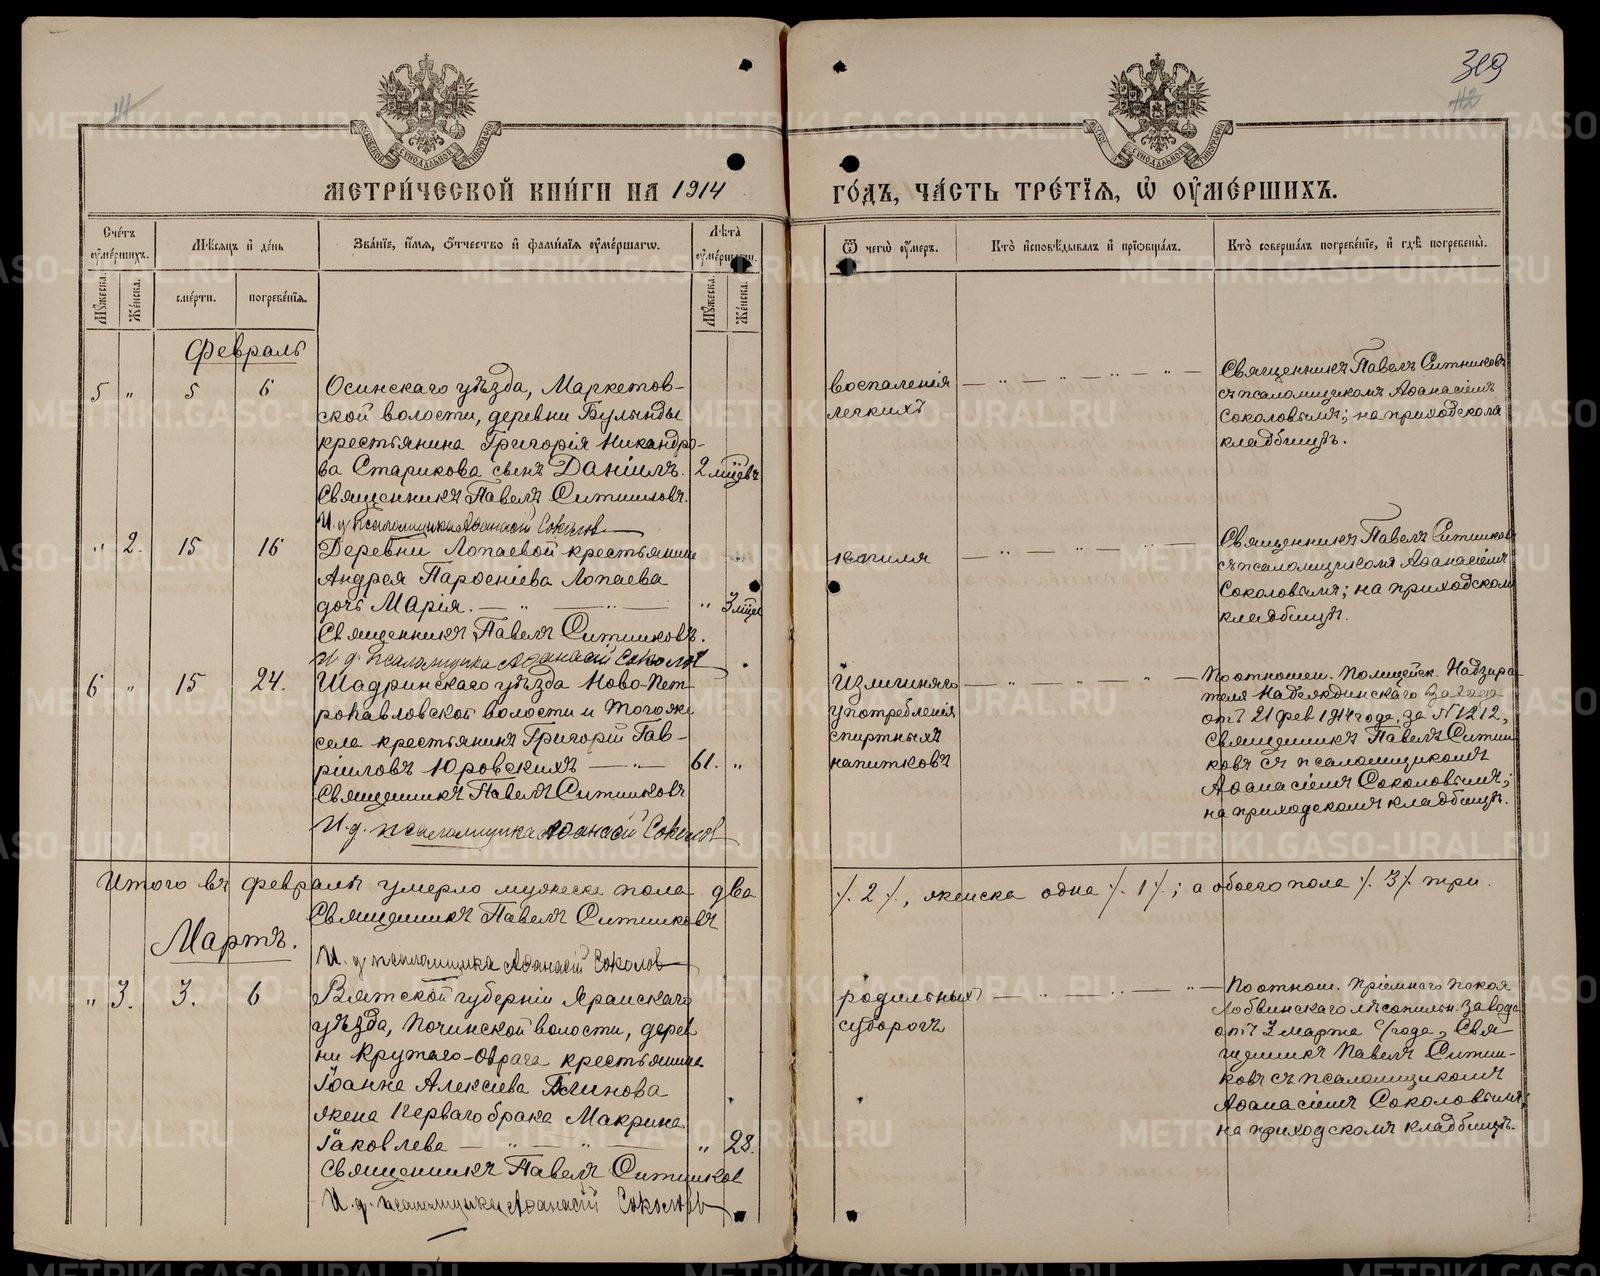 319
42
МЕТРИЧЕСКОЙ КНИГИ НА 1914
ГОДЪ, ЧАСТЬ ТРЕТІЯ, Ѡ ОУМЕРШИХЪ.
Счетъ оумершихъ.
Мѣсяцъ и день
Званіе, имя, отчество и фамилія оумершагω.
Лѣта оумершагω.
Ѿ чегω оумеръ.
Кто исповѣдывалъ и пріобщалъ.
Кто совершалъ погребеніе, и гдѣ погребены.
Мужеска.
Женска.
смерти.
погребенія.
Мужеска.
Женска.
Февраль
5 " 5 6
Осинскаго уѣзда, Маркетов-
ской волости, деревни Булынды
крестьянина Григорія Никандро-
ва Старикова сынъ Даніилъ. 2 мѣцевъ
Священникъ Павелъ Ситниковъ.
И. д. псаломщика Аѳанасій Соколов
воспаленія
легкихъ
Священникъ Павелъ Ситниковъ
съ псаломщикомъ Аѳанасіемъ
Соколовымъ; на приходскомъ
кладбищѣ.
" 2. 15 16
Деревни Лопаевой крестьянина
Андрея Парѳеніева Лопаева
дочь Марія. " 3 мѣца
Священникъ Павелъ Ситниковъ.
И. д. псаломщика Аѳанасій Соколов
кашля
Священникъ Павелъ Ситниковъ
съ псаломщикомъ Аѳанасіемъ
Соколовымъ; на приходскомъ
кладбищѣ.
6 " 15 24.
Шадринскаго уѣзда Ново-Пет-
ропавловской волости и тогоже
села крестьянинъ Григорій Гав-
ріиловъ Юровскихъ 61. "
Священникъ Павелъ Ситниковъ
И. д. псаломщика Аѳанасій Соколов
Излишняго
употребленія
спиртныхъ
напитковъ
По отношен. Полицейск. Надзира-
теля Надеждинскаго завода
отъ 21 фев 1914 года, за № 1212,
Священникъ Павелъ Ситни-
ковъ съ псаломщикомъ
Аѳанасіемъ Соколовымъ;
на приходскомъ кладбищѣ.
Итого въ февралѣ умерло мужеска пола два
./. 2 ./., женска одна ./. 1 ./.; а обоего пола ./. 3 ./. три.
Священникъ Павелъ Ситниковъ
И. д. псаломщика Аѳанасій Соколов
Мартъ.
" 3. 3. 6
Вятской губерніи Яранскаго
уѣзда, Починской волости, дерев
ни Крутаго-Оврага крестьянина
Іоанна Алексіева Блинова
жена перваго брака Макрина
Іаковлева " 28.
Священникъ Павелъ Ситников
И. д. псаломщика Аѳанасій Соколов
родильныхъ
судорогъ
По отнош. Пріемнаго покоя
Лобвинскаго лѣсопильн. завода
отъ 3 марта с/года, Свя-
щенникъ Павелъ Ситни-
ковъ съ псаломщикомъ
Аѳанасіемъ Соколовымъ;
на приходскомъ кладбищѣ.
METRIKI.GASO-URAL.RU